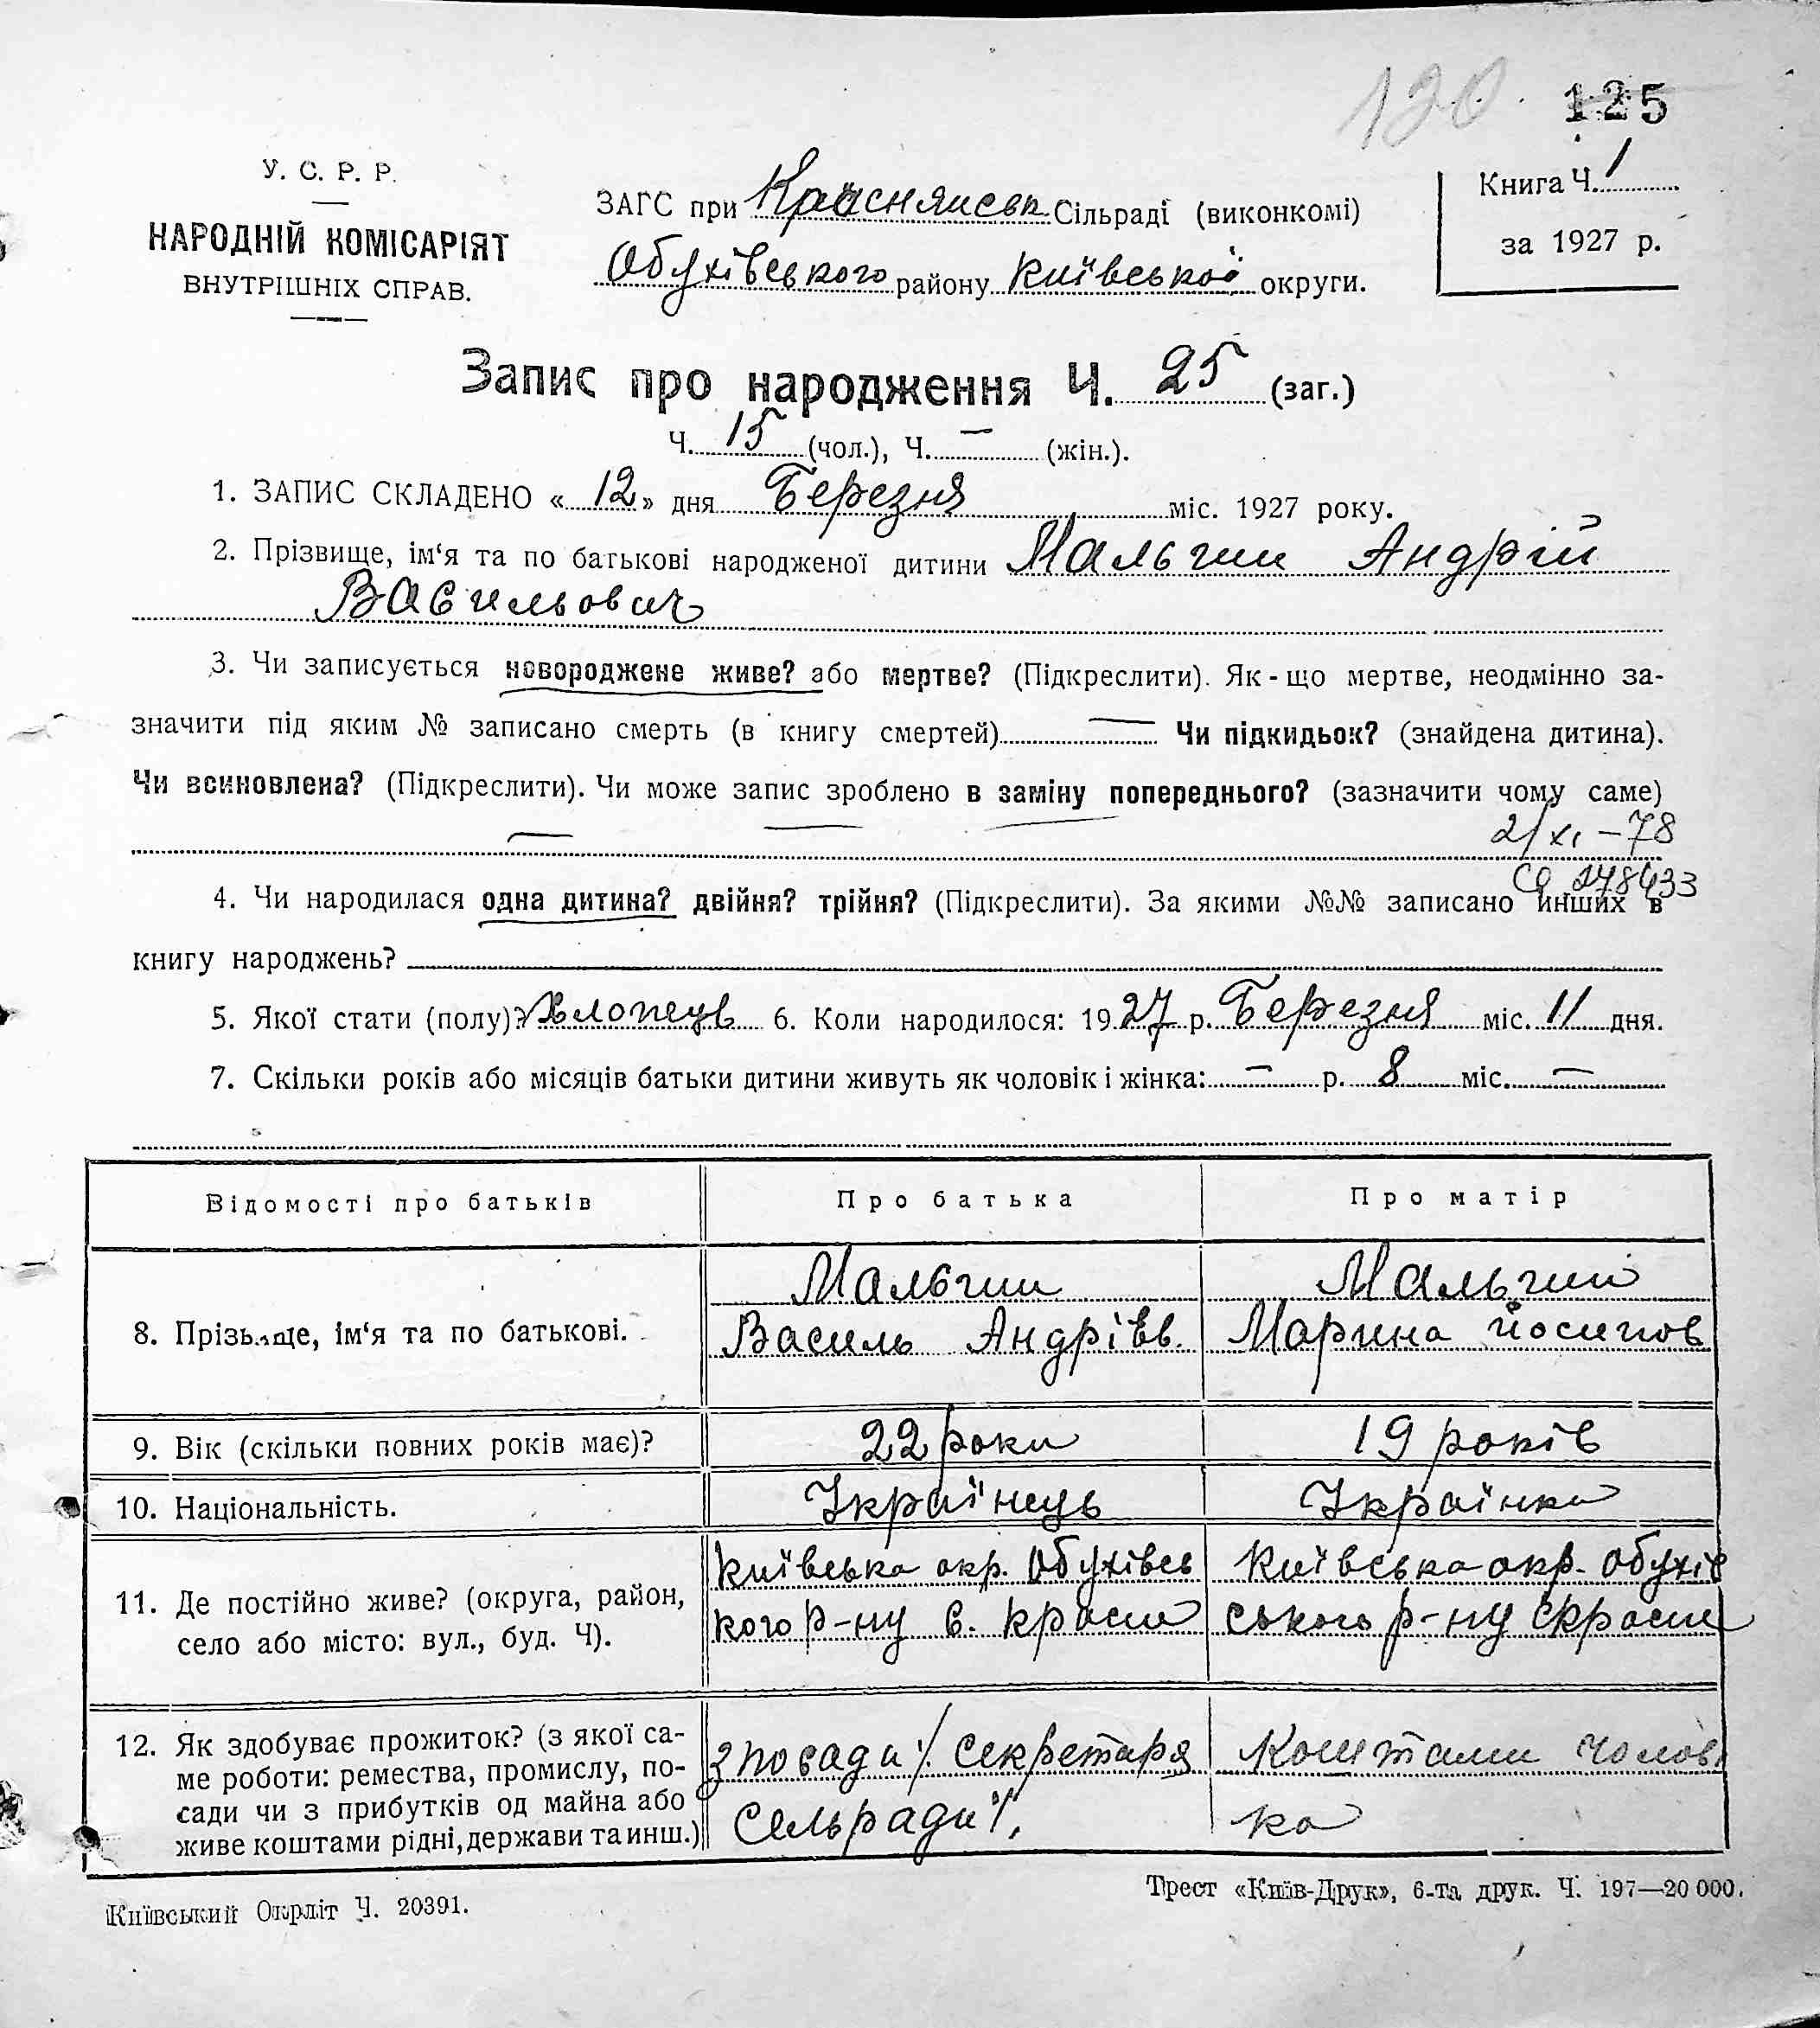 120 125
У. С. Р. Р.
НАРОДНІЙ КОМІСАРІЯТ
ВНУТРІШНІХ СПРАВ.
ЗАГС при Краснянськ. Сільраді (виконкомі)
Обухівського району Київської округи.
Книга Ч. 1
за 1927 р.
Запис про народження Ч. 25 (заг.)
Ч. 15 (чол.), Ч. — (жін.).
1. ЗАПИС СКЛАДЕНО « 12 » дня Березня міс. 1927 року.
2. Прізвище, ім‘я та по батькові народженої дитини Мальчин Андрій
Васильович
3. Чи записується новороджене живе? або мертве? (Підкреслити). Як - що мертве, неодмінно за-
значити під яким № записано смерть (в книгу смертей) — Чи підкидьок? (знайдена дитина).
Чи всиновлена? (Підкреслити). Чи може запис зроблено в заміну попереднього? (зазначити чому саме)
— — — 2/XI – 78
278433
4. Чи народилася одна дитина? двійня? трійня? (Підкреслити). За якими №№ записано инших в
книгу народжень?
5. Якої стати (полу)? Хлопець 6. Коли народилося: 1927 р. Березня міс. 11 дня.
7. Скільки років або місяців батьки дитини живуть як чоловік і жінка: — р. 8 міс. —
Відомості про батьків Про батька Про матір
8. Прізвище, ім‘я та по батькові. Мальчин Мальчин
Василь Андрієв. Марина Йосипов
9. Вік (скільки повних років має)? 22 роки 19 років
10. Національність. Українець Українка
11. Де постійно живе? (округа, район,
село або місто: вул., буд. Ч).
Київська окр. Обухівсь
кого р-ну с. Красн
Київська окр. Обухів
ського р-ну с Красн
12. Як здобуває прожиток? (з якої са-
ме роботи: ремества, промислу, по-
сади чи з прибутків од майна або
живе коштами рідні, держави та инш.)
З посади секретаря
Сельради
Коштами чолові
ка
Київський Окрліт Ч. 20391.
Трест «Київ-Друк», 6-та друк. Ч. 197—20 000.